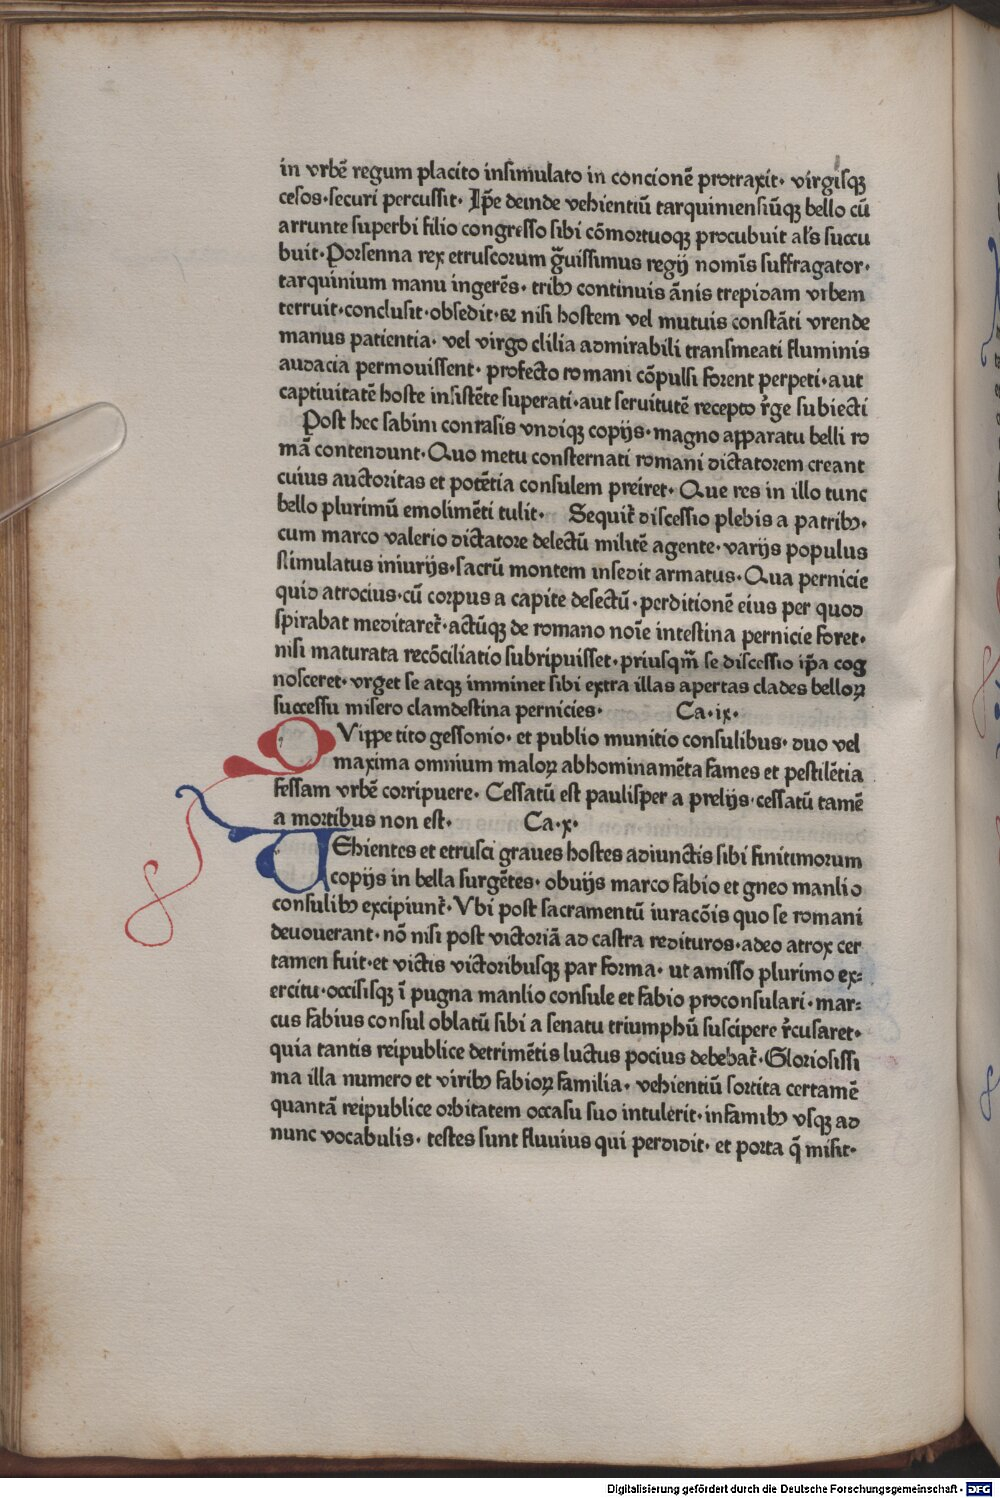 in vrbē regum placito insimulato in concionē protraxit· virgisqꝫ
cesos·securi percussit· Ip̄e deinde vehientiū tarquiniensiūqꝫ bello cū
arrunte superbi filio congresso sibi cōmortuoqꝫ procubuit al's succu
buit·Porsenna rex etruscorum g̃uissimus regij nomīs suffragator·
tarquinium manu ingerēs· tribꝰ continuis ānis trepidam vrbem
terruit·conclusit·obsedit·⁊ nisi hostem vel mutuis constāti vrende
manus patientia· vel virgo clilia admirabili transmeati fluminis
audacia permouissent· profecto romani cōpulsi forent perpeti·aut
captiuitatē hoste insistēte superati·aut seruitutē recepto r̄ge subiecti
Post hec sabini contrasis vndiqꝫ copijs·magno apparatu belli ro
mā contendunt·Quo metu consternati romani dictatorem creant
cuius auctoritas et potētia consulem preiret· Que res in illo tunc
bello plurimū emolimēti tulit· Sequit᷑ discessio plebis a patribꝰ·
cum marco valerio dictatore delectū militē agente·varijs populus
stimulatus iniurijs·sacrū montem insedit armatus·Qua pernicie
quid atrocius·cū corpus a capite desectū·perditionē eius per quod
spirabat meditaret᷑·actūqꝫ de romano noīe intestina pernicie foret·
nisi maturata recōciliatio subripuisset·priusqm̄ se discessio ip̄a cog
nosceret·vrget se atqꝫ imminet sibi extra illas apertas clades belloꝝ
successu misero clamdestina pernicies· Ca·ix·
QVippe tito gessonio· et publio munitio consulibus· duo vel
maxima omnium maloꝝ abhominamēta fames et pestilētia
fessam vrbē corripuere· Cessatū est paulisper a prelijs·cessatū tamē
a mortibus non est· Ca·x·
VEhientes et etrusci graues hostes adiunctis sibi finitimorum
copijs in bella surgētes· obuijs marco fabio et gneo manlio
consulibꝰ excipiunt᷑·Vbi post sacramentū iuracōis quo se romani
deuouerant·nō nisi post victoriā ad castra redituros·adeo atrox cer
tamen fuit·et victis victoribusqꝫ par forma· ut amisso plurimo ex⸗
ercitu·occisisqꝫ ī pugna manlio consule et fabio proconsulari·mar⸗
cus fabius consul oblatū sibi a senatu triumphū suscipere r̄cusaret·
quia tantis reipublice detrimētis luctus pocius debebat᷑·Gloriosissi
ma illa numero et viribꝰ fabioꝝ familia· vehientiū sortita certamē
quantā reipublice orbitatem occasu suo intulerit·infamibꝰ vsqꝫ ad
nunc vocabulis· testes sunt fluuius qui perdidit· et porta q̄ misit·
Digitalisierung gefördert durch die Deutsche Forschungsgemeinschaft - DFG